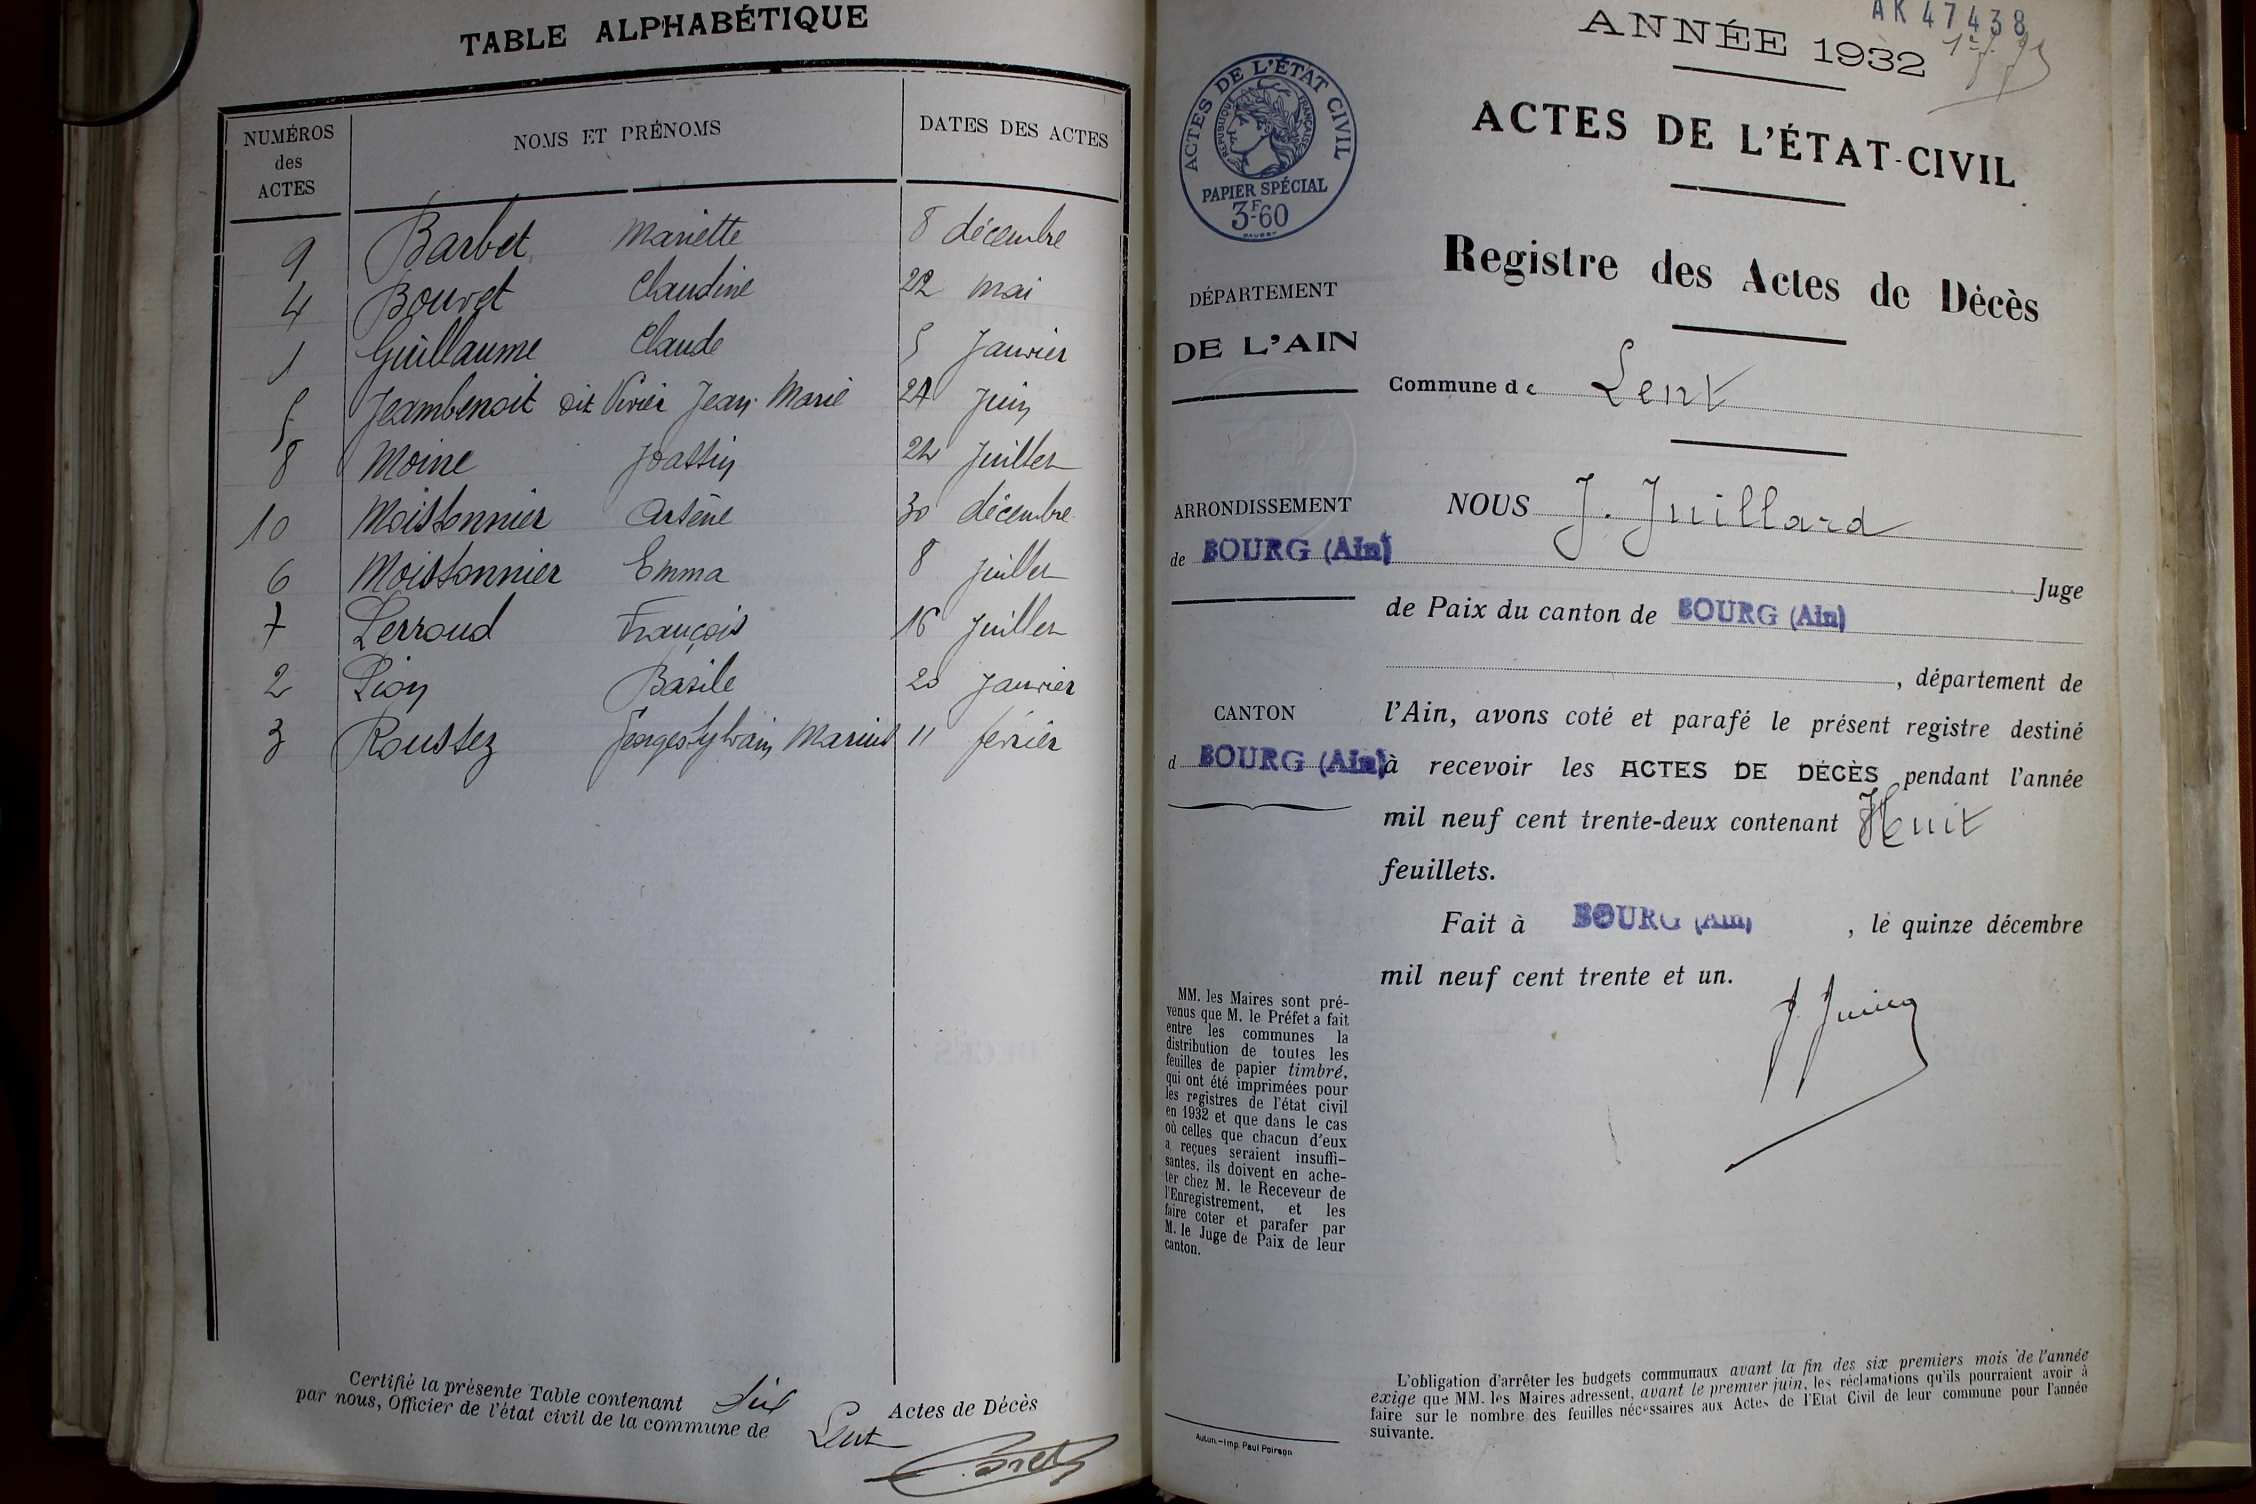 TABLE ALPHABÉTIQUE
NUMÉROS des ACTES
NOMS ET PRÉNOMS
DATES DES ACTES
9 Barbet Mariette 8 décembre
4 Bouvet Claudine 22 mai
1 Guillaume Claude 5 Janvier
5 Jeambenoit dit Vivier Jean Marie 24 Juin
8 Moine Joassin 24 Juillet
10 Moissonnier Arsène 30 décembre
6 Moissonnier Emma 8 Juillet
7 Perroud François 16 Juillet
2 Pion Basile 20 Janvier
3 Roussez Georges Sylvain Marius 11 février
Certifié la présente Table contenant dix Actes de Décès
par nous, Officier de l'état civil de la commune de Lent
AK 47438
ANNÉE 1932
ACTES DE L'ÉTAT CIVIL
RÉPUBLIQUE FRANÇAISE
PAPIER SPÉCIAL
3F60
ACTES DE L'ÉTAT-CIVIL
Registre des Actes de Décès
DÉPARTEMENT
DE L'AIN
Commune de Lent
ARRONDISSEMENT
de BOURG (Ain)
NOUS J. Juillard
Juge
de Paix du canton de BOURG (Ain)
, département de
CANTON
d BOURG (Ain)
l'Ain, avons coté et parafé le présent registre destiné
à recevoir les ACTES DE DÉCÈS pendant l'année
mil neuf cent trente-deux contenant Huit
feuillets.
Fait à BOURG (Ain), le quinze décembre
mil neuf cent trente et un.
MM. les Maires sont pré-
venus que M. le Préfet a fait
entre les communes la
distribution de toutes les
feuilles de papier timbré,
qui ont été imprimées pour
les registres de l'état civil
en 1932 et que dans le cas
où celles que chacun d'eux
a reçues seraient insuffi-
santes, ils doivent en ache-
ter chez M. le Receveur de
l'Enregistrement, et les
faire coter et parafer par
M. le Juge de Paix de leur
canton.
L'obligation d'arrêter les budgets communaux avant la fin des six premiers mois de l'année
exige que MM. les Maires adressent, avant le premier juin, les réclamations qu'ils pourraient avoir à
faire sur le nombre des feuilles nécessaires aux Actes de l'Etat Civil de leur commune pour l'année
suivante.
Autun.-Imp. Paul Poirson